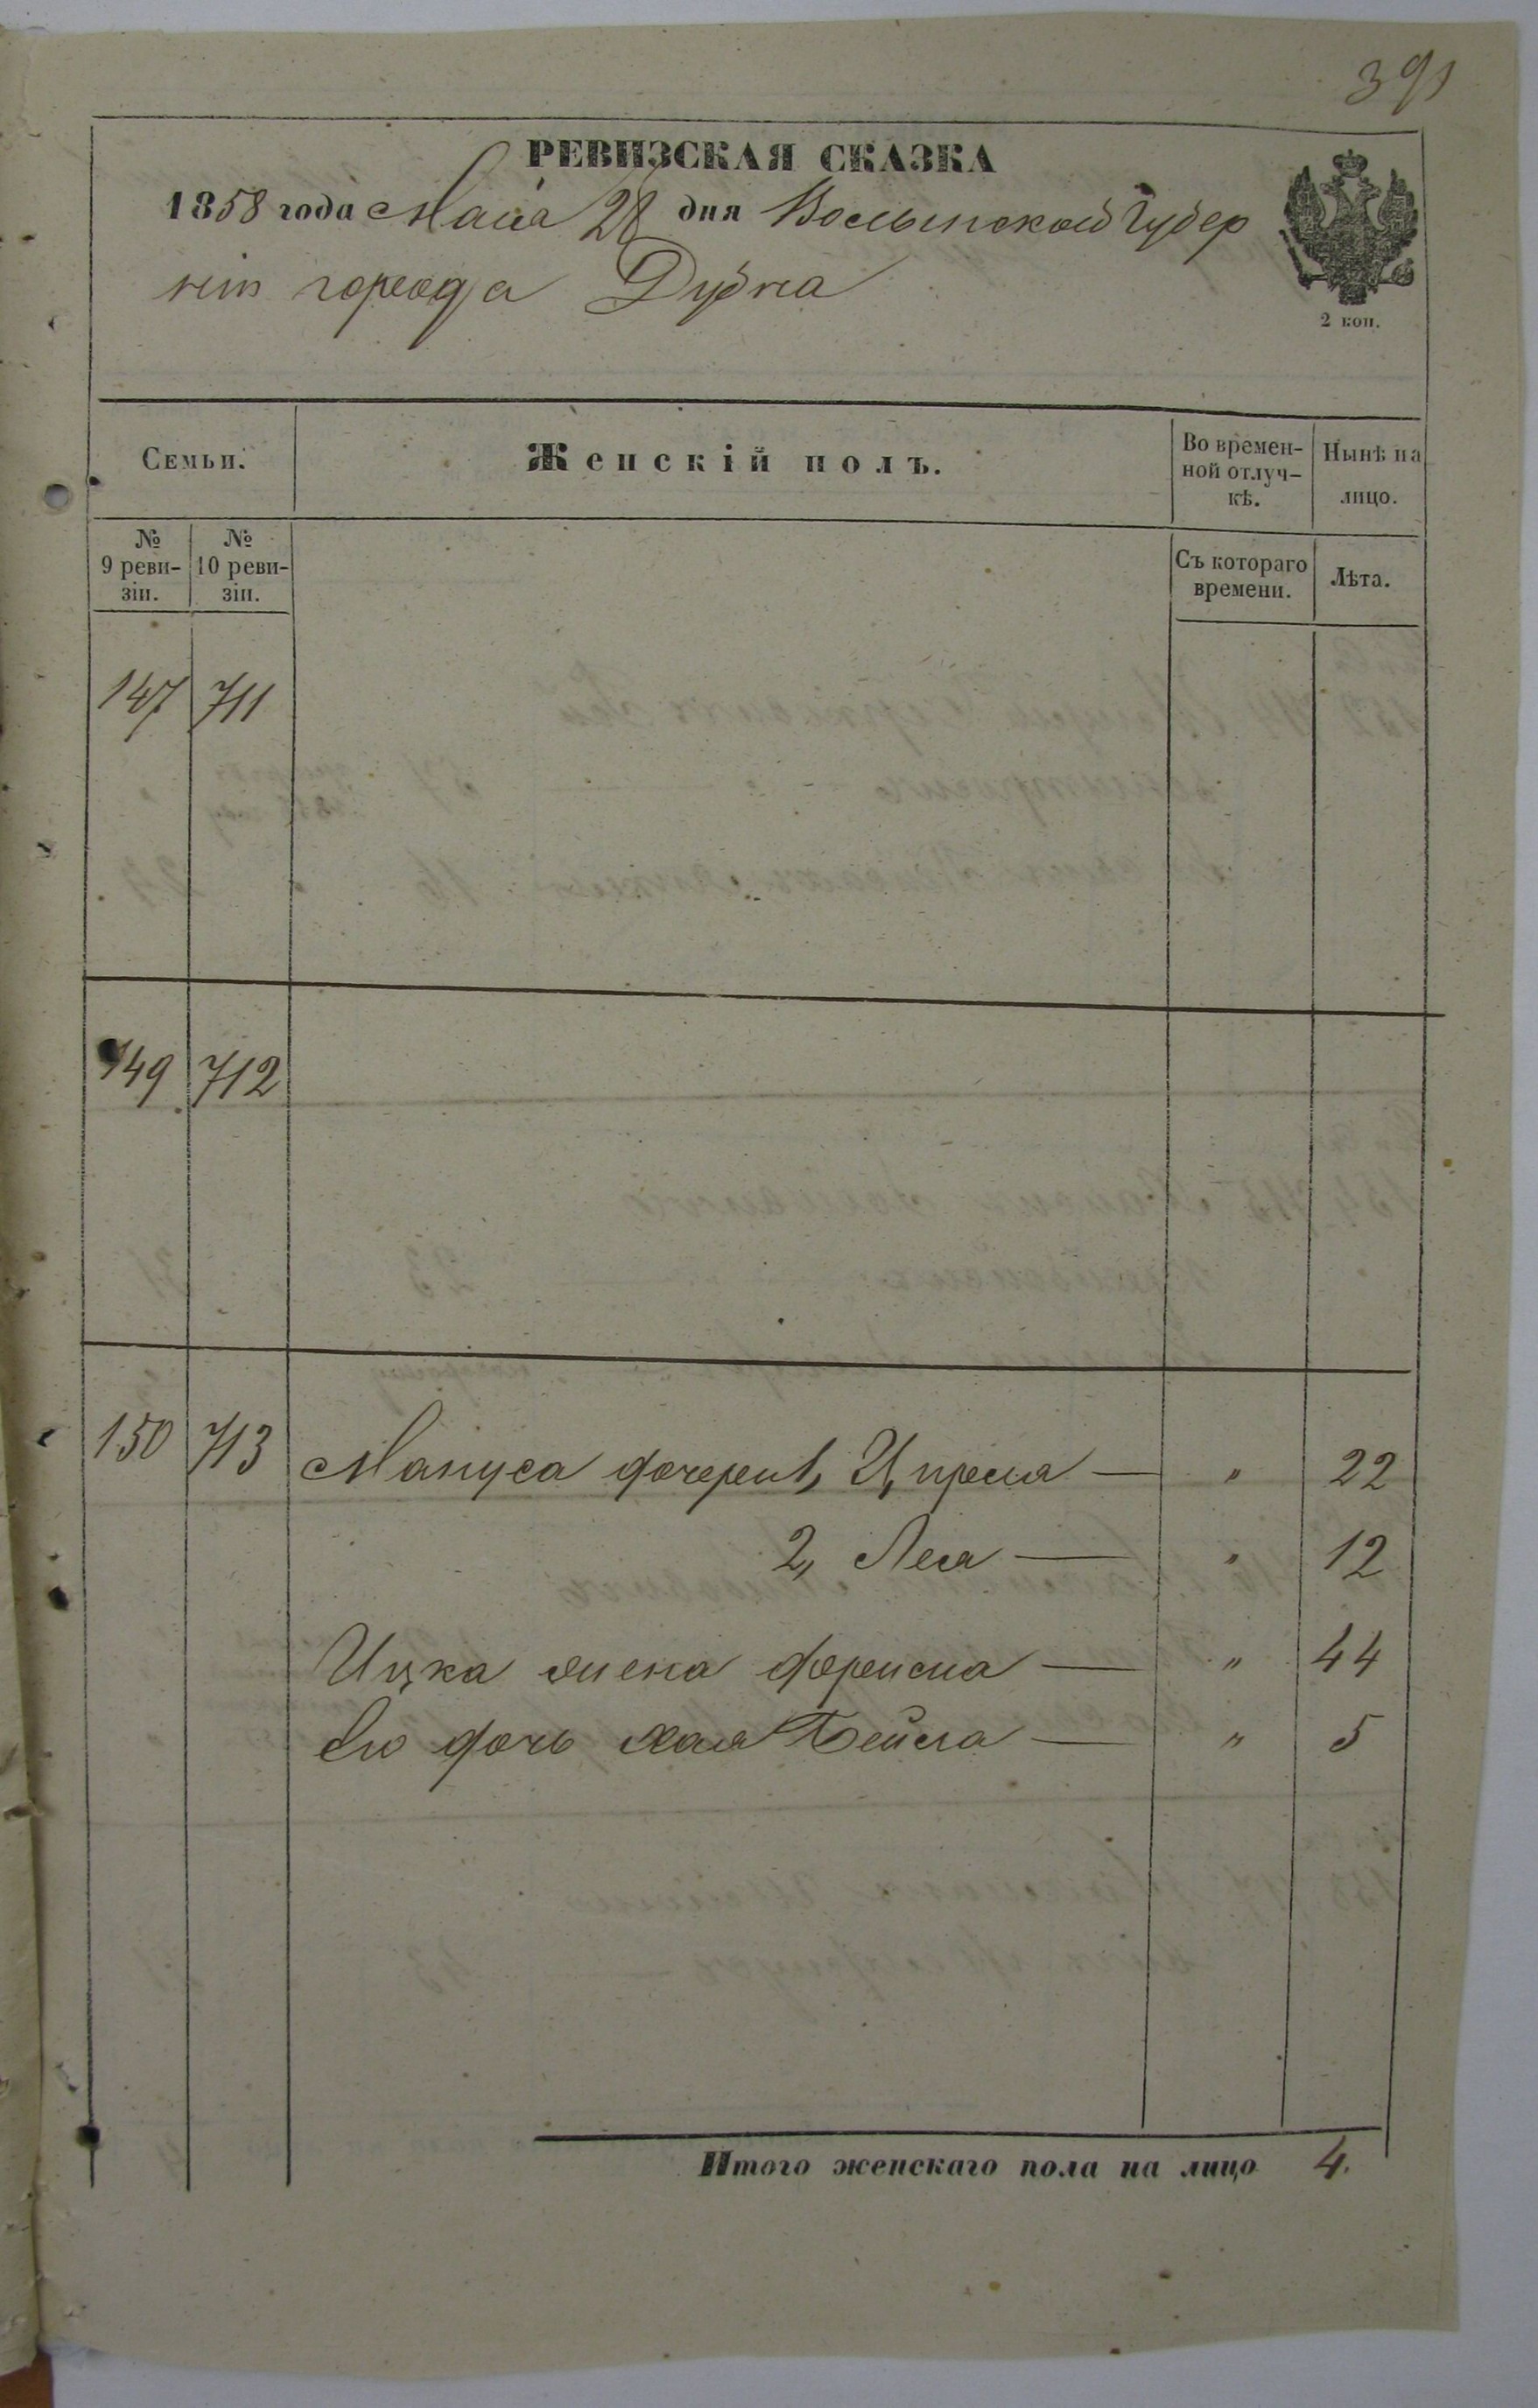 391
РЕВИЗСКАЯ СКАЗКА
1858 года Маія 28 дня Волынской Губер
ніи города Дубна
2 коп.
Семьи. Женскій полъ. Во времен-ной отлуч-кѣ. Нынѣ на лицо.
№ 9 реви-зіи. № 10 реви-зіи. Съ котораго времени. Лѣта.
147 711
149 712
150 713 Мануса дочери 1, Ципра — " 22
2, Лея — " 12
Ицка жена Фрейма — " 44
Его дочь Хая Бейла — " 5
Итого женскаго пола на лицо 4.